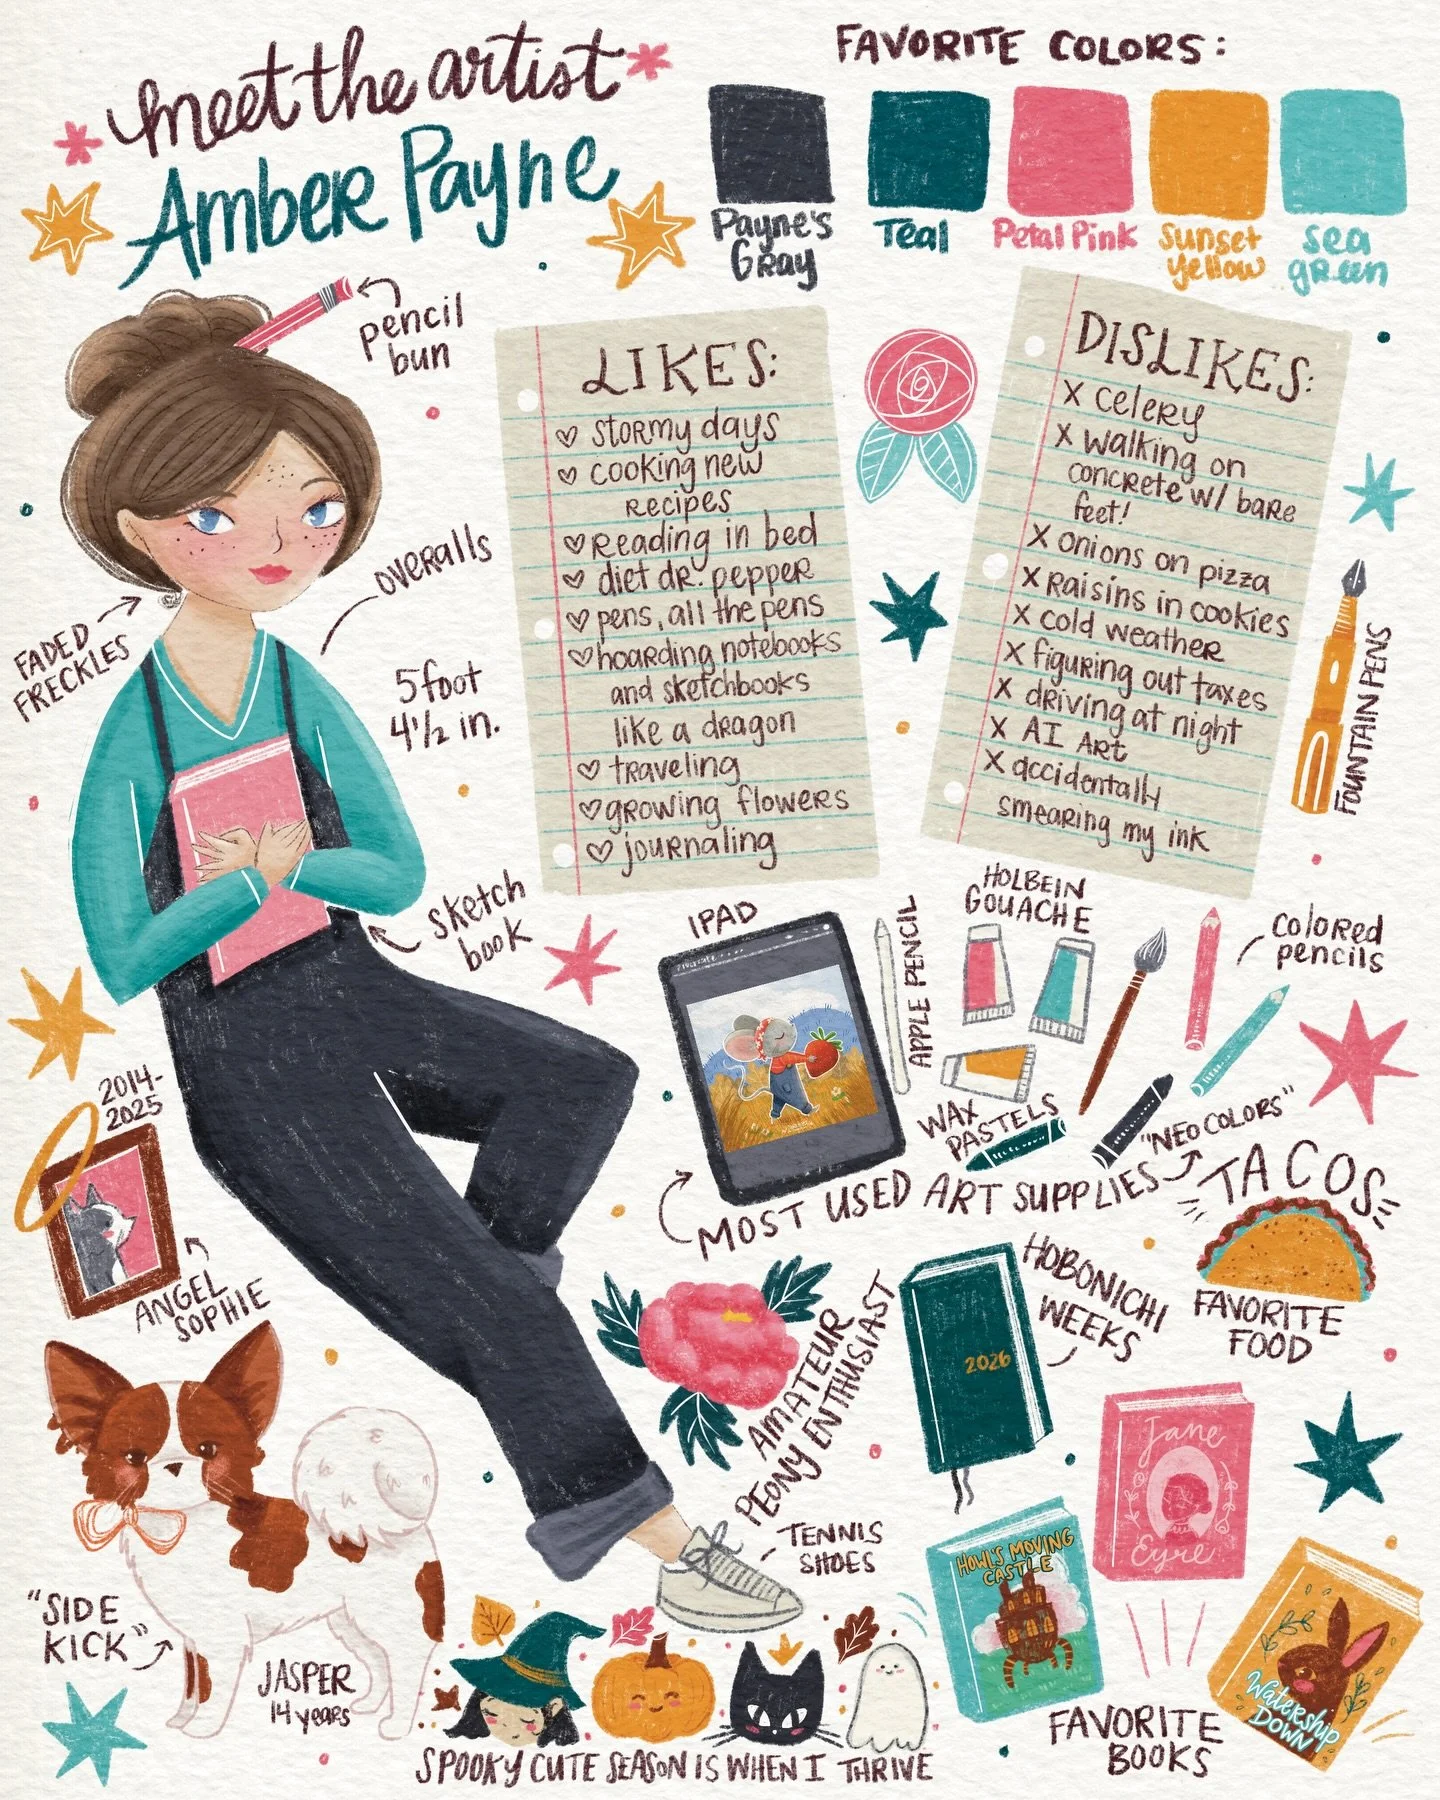 meet the artist
Amber Payne
FAVORITE COLORS:
Payne's
Gray
Teal
Petal Pink
Sunset
yellow
sea
green
pencil
bun
overalls
FADED
FRECKLES
5 foot
4 1/2 in.
sketch
book
LIKES:
♡ stormy days
♡ cooking new
recipes
♡ reading in bed
♡ diet dr. pepper
♡ pens, all the pens
♡ hoarding notebooks
and sketchbooks
like a dragon
♡ traveling
♡ growing flowers
♡ journaling
DISLIKES:
X celery
X walking on
concrete w/ bare
feet!
X onions on pizza
X raisins in cookies
X cold weather
X figuring out taxes
X driving at night
X AI Art
X accidentally
smearing my ink
FOUNTAIN PENS
IPAD
APPLE PENCIL
HOLBEIN
GOUACHE
colored
pencils
WAX
PASTELS
"NEO COLORS"
MOST USED ART SUPPLIES
TACOS
FAVORITE
FOOD
2014-
2025
ANGEL
SOPHIE
AMATEUR
PEONY ENTHUSIAST
HOBONICHI
WEEKS
2026
TENNIS
SHOES
"SIDE
KICK"
JASPER
14 years
SPOOKY CUTE SEASON IS WHEN I THRIVE
Jane
Eyre
HOWL'S MOVING
CASTLE
Watership
Down
FAVORITE
BOOKS